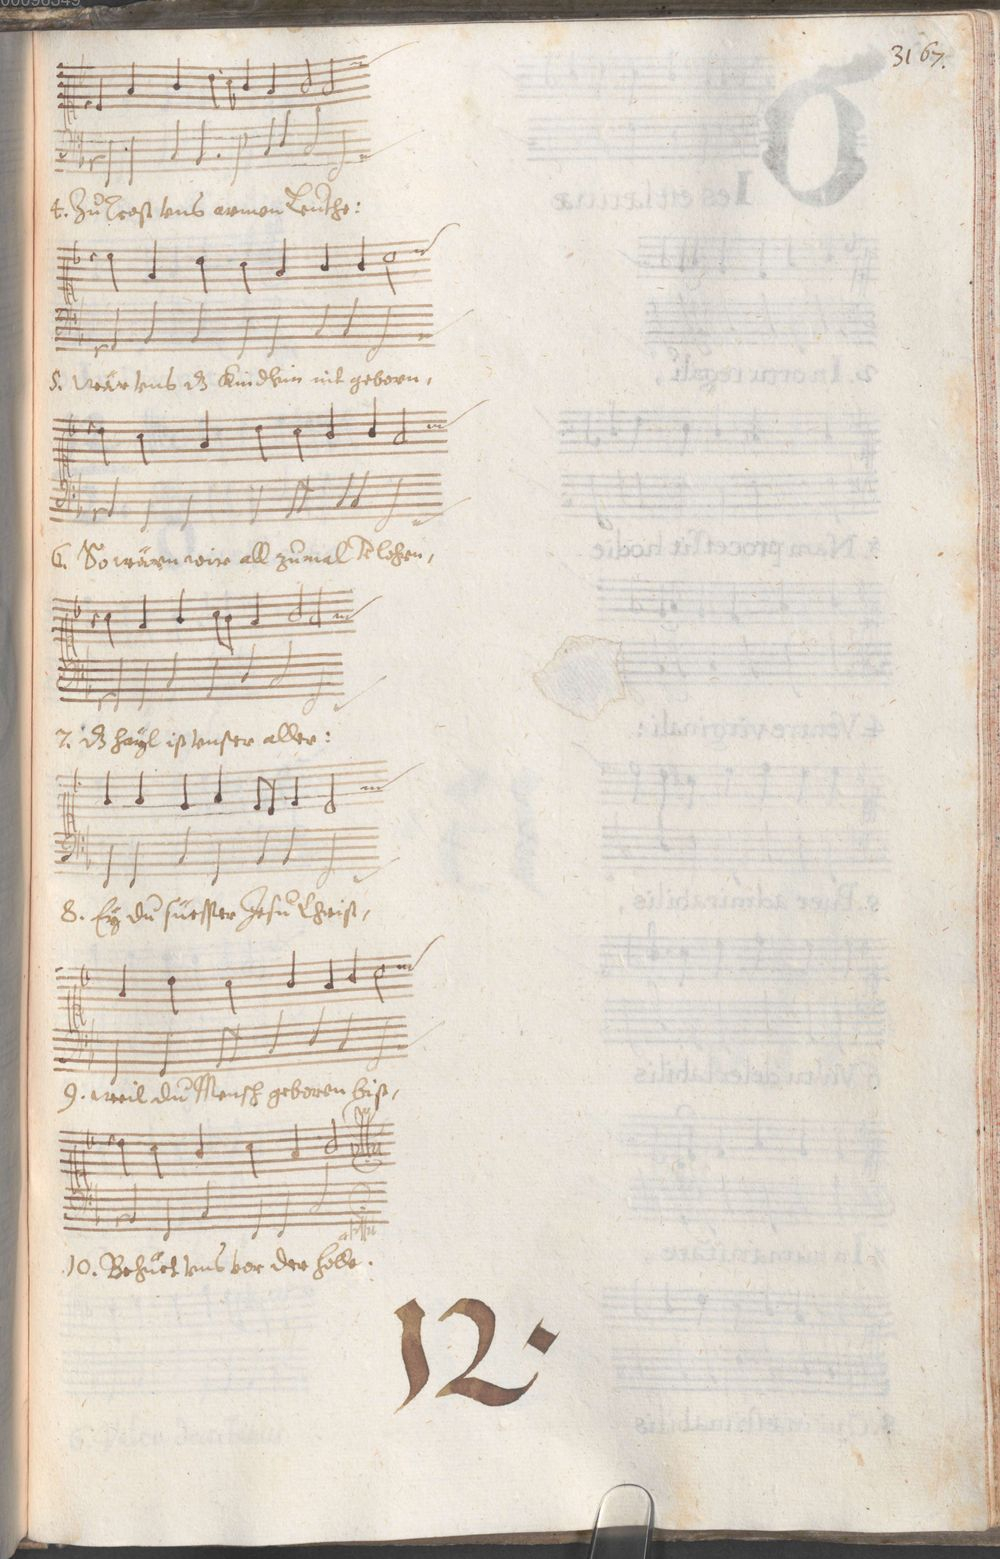 3167.
4. Zu Trost vns armen Leuthe:
5. wär vns dz Kindlein nit geborn,
6. So wären wir all zumal verlohren,
7. dz hayl ist vnser aller:
8. Ey du süesser Jesu Christ,
9. weil du Mensch geboren bist,
10. Behüet vns vor der helle.
12.